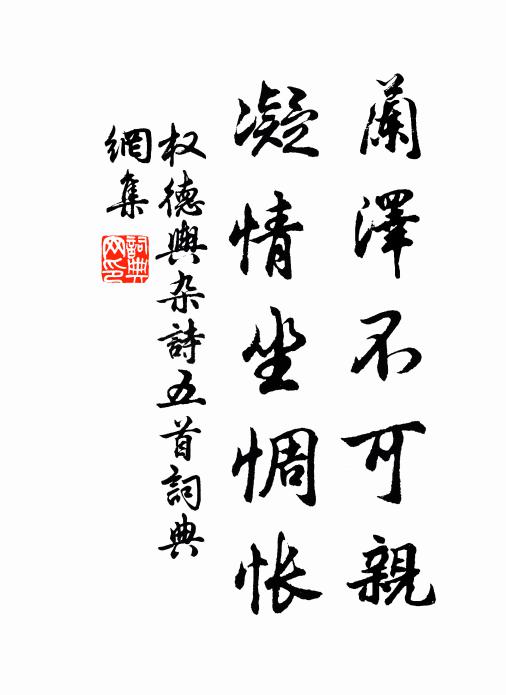 蘭澤不可親
凝情坐惆怅
权德輿杂詩五首詞典
網集
詞典網印